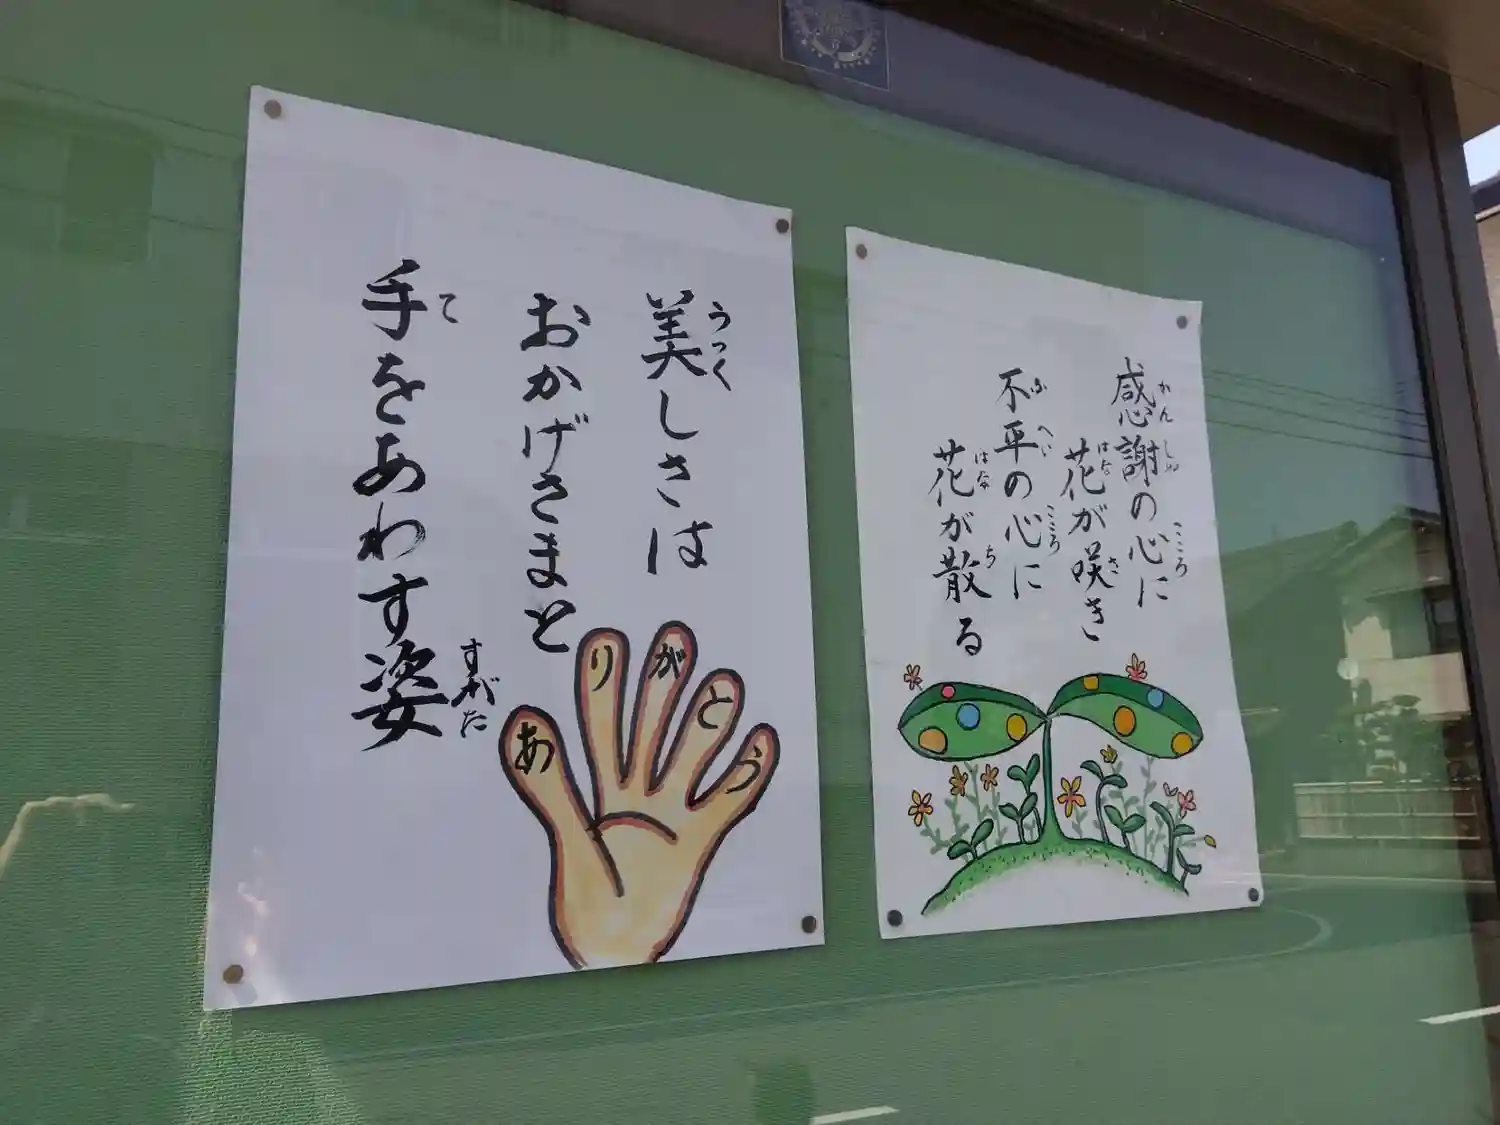 感謝の心に
かんしゃ
こころ
花が咲き
はな
さ
不平の心に
ふへい
こころ
花が散る
はな
ち
美しさは
うつく
おかげさまと
手をあわす姿
て
すがた
ありがとう